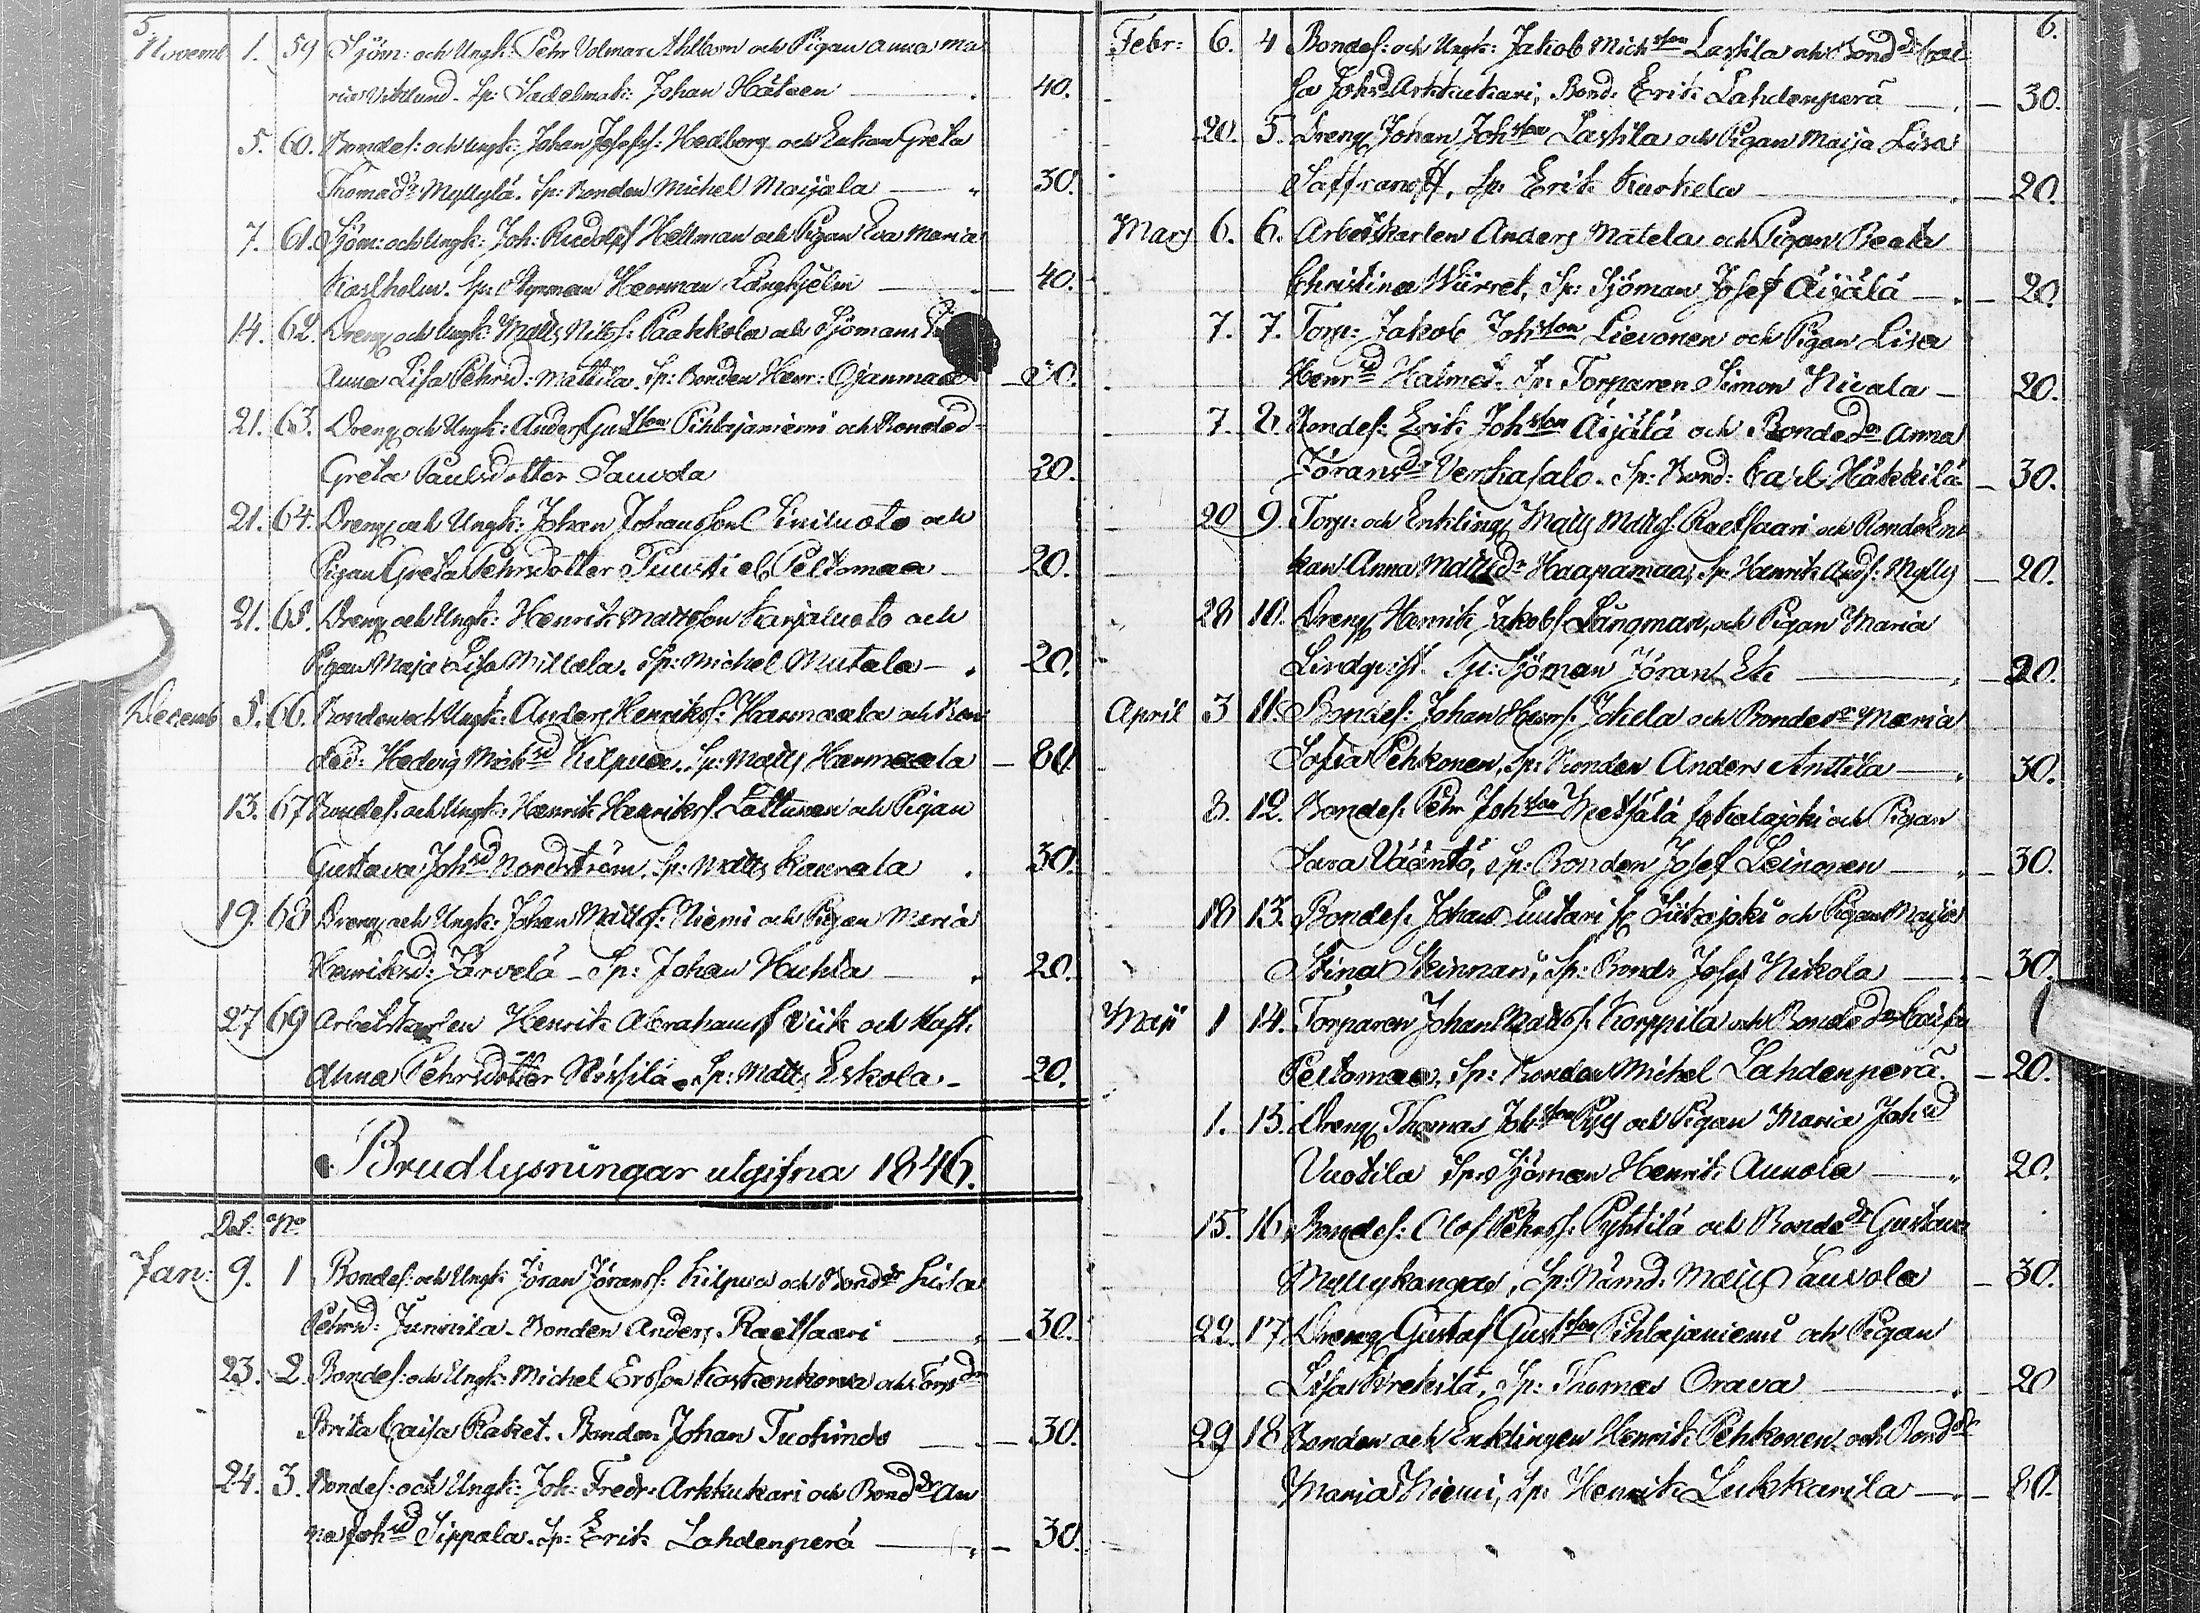 5.
Novemb. 1. 59 Sjöm: och Ungk: Pehr Volmar Ahlbom och Pigan Anna Ma
ria Viklund. Sp: Sadelmak: Johan Hätäen 40.
5. 60. Bondes: och Ungk: Johan Josefss: Hedborg och Enkan Greta
Thomasdr Myllylä. Sp: Bonden Michel Maijala 30.
7. 61. Sjöm: och Ungk: Joh: Rudolf Hellman och Pigan Eva Maria
Karlholm. Sp: Herman Långhjelm 40.
14. 62. Dreng och Ungk: Matts Nilss: Paahkola och Sjömans
Anna Lisa Pehrsd: Mattila. Sp: Bonden Henr: Ojanmaa 30.
21. 63. Dreng och Ungk: Anders Gustson Pihlajaniemi och Bonded
Greta Paulsdotter Sauvola 20.
21. 64. Dreng och Ungk: Johan Johansson Liniluoto och
Pigan Greta Pehrsdotter Puusti el. Peltomaa 20.
21. 65. Dreng och Ungk: Henrik Mattsson Karjaluoto och
Pigan Maja Lisa Mittala. Sp: Michel Mutala 20.
Decemb. 5. 66. Bonden och Ungk: Anders Henrikss: Hannaala och Bon
ded: Hedvig Michsd Kilpua. Sp: Matts Hannaala 80.
13. 67 Bondes: och Ungk: Henrik Henrikss: Lättunen och Pigan
Gustava Johsd Nordström. Sp: Matts Kaurala 30.
19. 68 Dreng och Ungk: Johan Mattss: Niemi och Pigan Maria
Henriksd: Järvelä Sp: Johan Huhta 20.
27 69 Arbetskarlen Henrik Abrahamss Wiik och
Anna Pehrsdotter Sp: Matts Eskola. 20.
Brudlysningar utgifna 1846.
Dat: No
Jan: 9. 1 Bondes: och Ungk: Jöran Jöranss: Kilpua och Bonddr Lisa
Pehrsd: Junnila. Bonden Anders Raetsaari 30.
23. 2. Bondes: och Ungk: Michel Ersson Koskenkorva och Torpdr
Brita Caisa Raket. Bonden Johan Tuohino 30.
24. 3. Bondes: och Ungk: Joh: Fredr: Arkkukari och Bonddr An
na Johsd Sippala. Sp: Erik Lahdenperä 30.
6.
Febr: 6. 4 Bondes: och Ungk: Jakob Michsson Lastila och Bonddr Cai
sa Johsd Arkkukari, Bond: Erik Lahdenperä 30.
20. 5. Dreng Johan Johsson Lastila och Pigan Maija Lisa
Saffranoff, Sp: Erik Kuokela 20.
Mars 6. 6. Arbetskarlen Anders Matela och Pigan Beata
Christina Wiirret, Sp: Sjöman Josef Äijälä 20.
7. 7. Torp: Jakob Johsson Lievonen och Pigan Lisa
Henrsd Halmet. Sp: Torparen Simon Nivala 20.
7. 8. Bondes: Erik Johsson Äijälä och Bondedr Anna
Jöransdr Verkasalo. Sp: Bond: Carl Häkkilä 30.
20 9. Torp: och Enkling Matts Mattss: Raetsaari och BondeEn
kan Anna Mattsdr Haapamaa, Sp: Henrik Ands: Mylly 20.
28 10. Dreng Henrik Jakobs: Långman, och Pigan Maria
Lindqvist. Sp: Sjöman Jöran Ek 20.
April 3 11. Bondes: Johan Henrs: Jokela och Bondedr Maria
Sofia Pehkonen, Sp: Bonden Anders Anttila 30.
8. 12. Bondes: Pehr Johsson Metsälä fr Kalajoki och Pigan
Sara Vääntö, Sp: Bonden Josef Leinonen 30.
18 13. Bondes: Johan Luutari fr Siikajoki och Pigan Maija
Stina Skinnari, Sp: Bond: Josef Nikola 30.
Maji 1 14. Torparen Johan Mattss: Korppila och Bondedr Caisa
Peltomaa, Sp: Bonden Michel Lahdenperä. 20.
1. 15. Dreng Thomas Johsson Pyy och Pigan Maria Johsd
Vuotila Sp: Sjöman Henrik Aunola 20.
15. 16. Bondes: Olof Pehrss: Pyhtilä och Bondedr Gustava
Myllykangas, Sp: Nämd. Matts Sauvola 30.
22. 17 Dreng Gustaf Gustson Pihlajaniemi och Pigan
Lisa Krekilä, Sp: Thomas Orava 20
29 18 Bonden och Enklingen Henrik Pehkonen och Bonddr
Maria Niemi, Sp: Henrik Lukkarila 80.